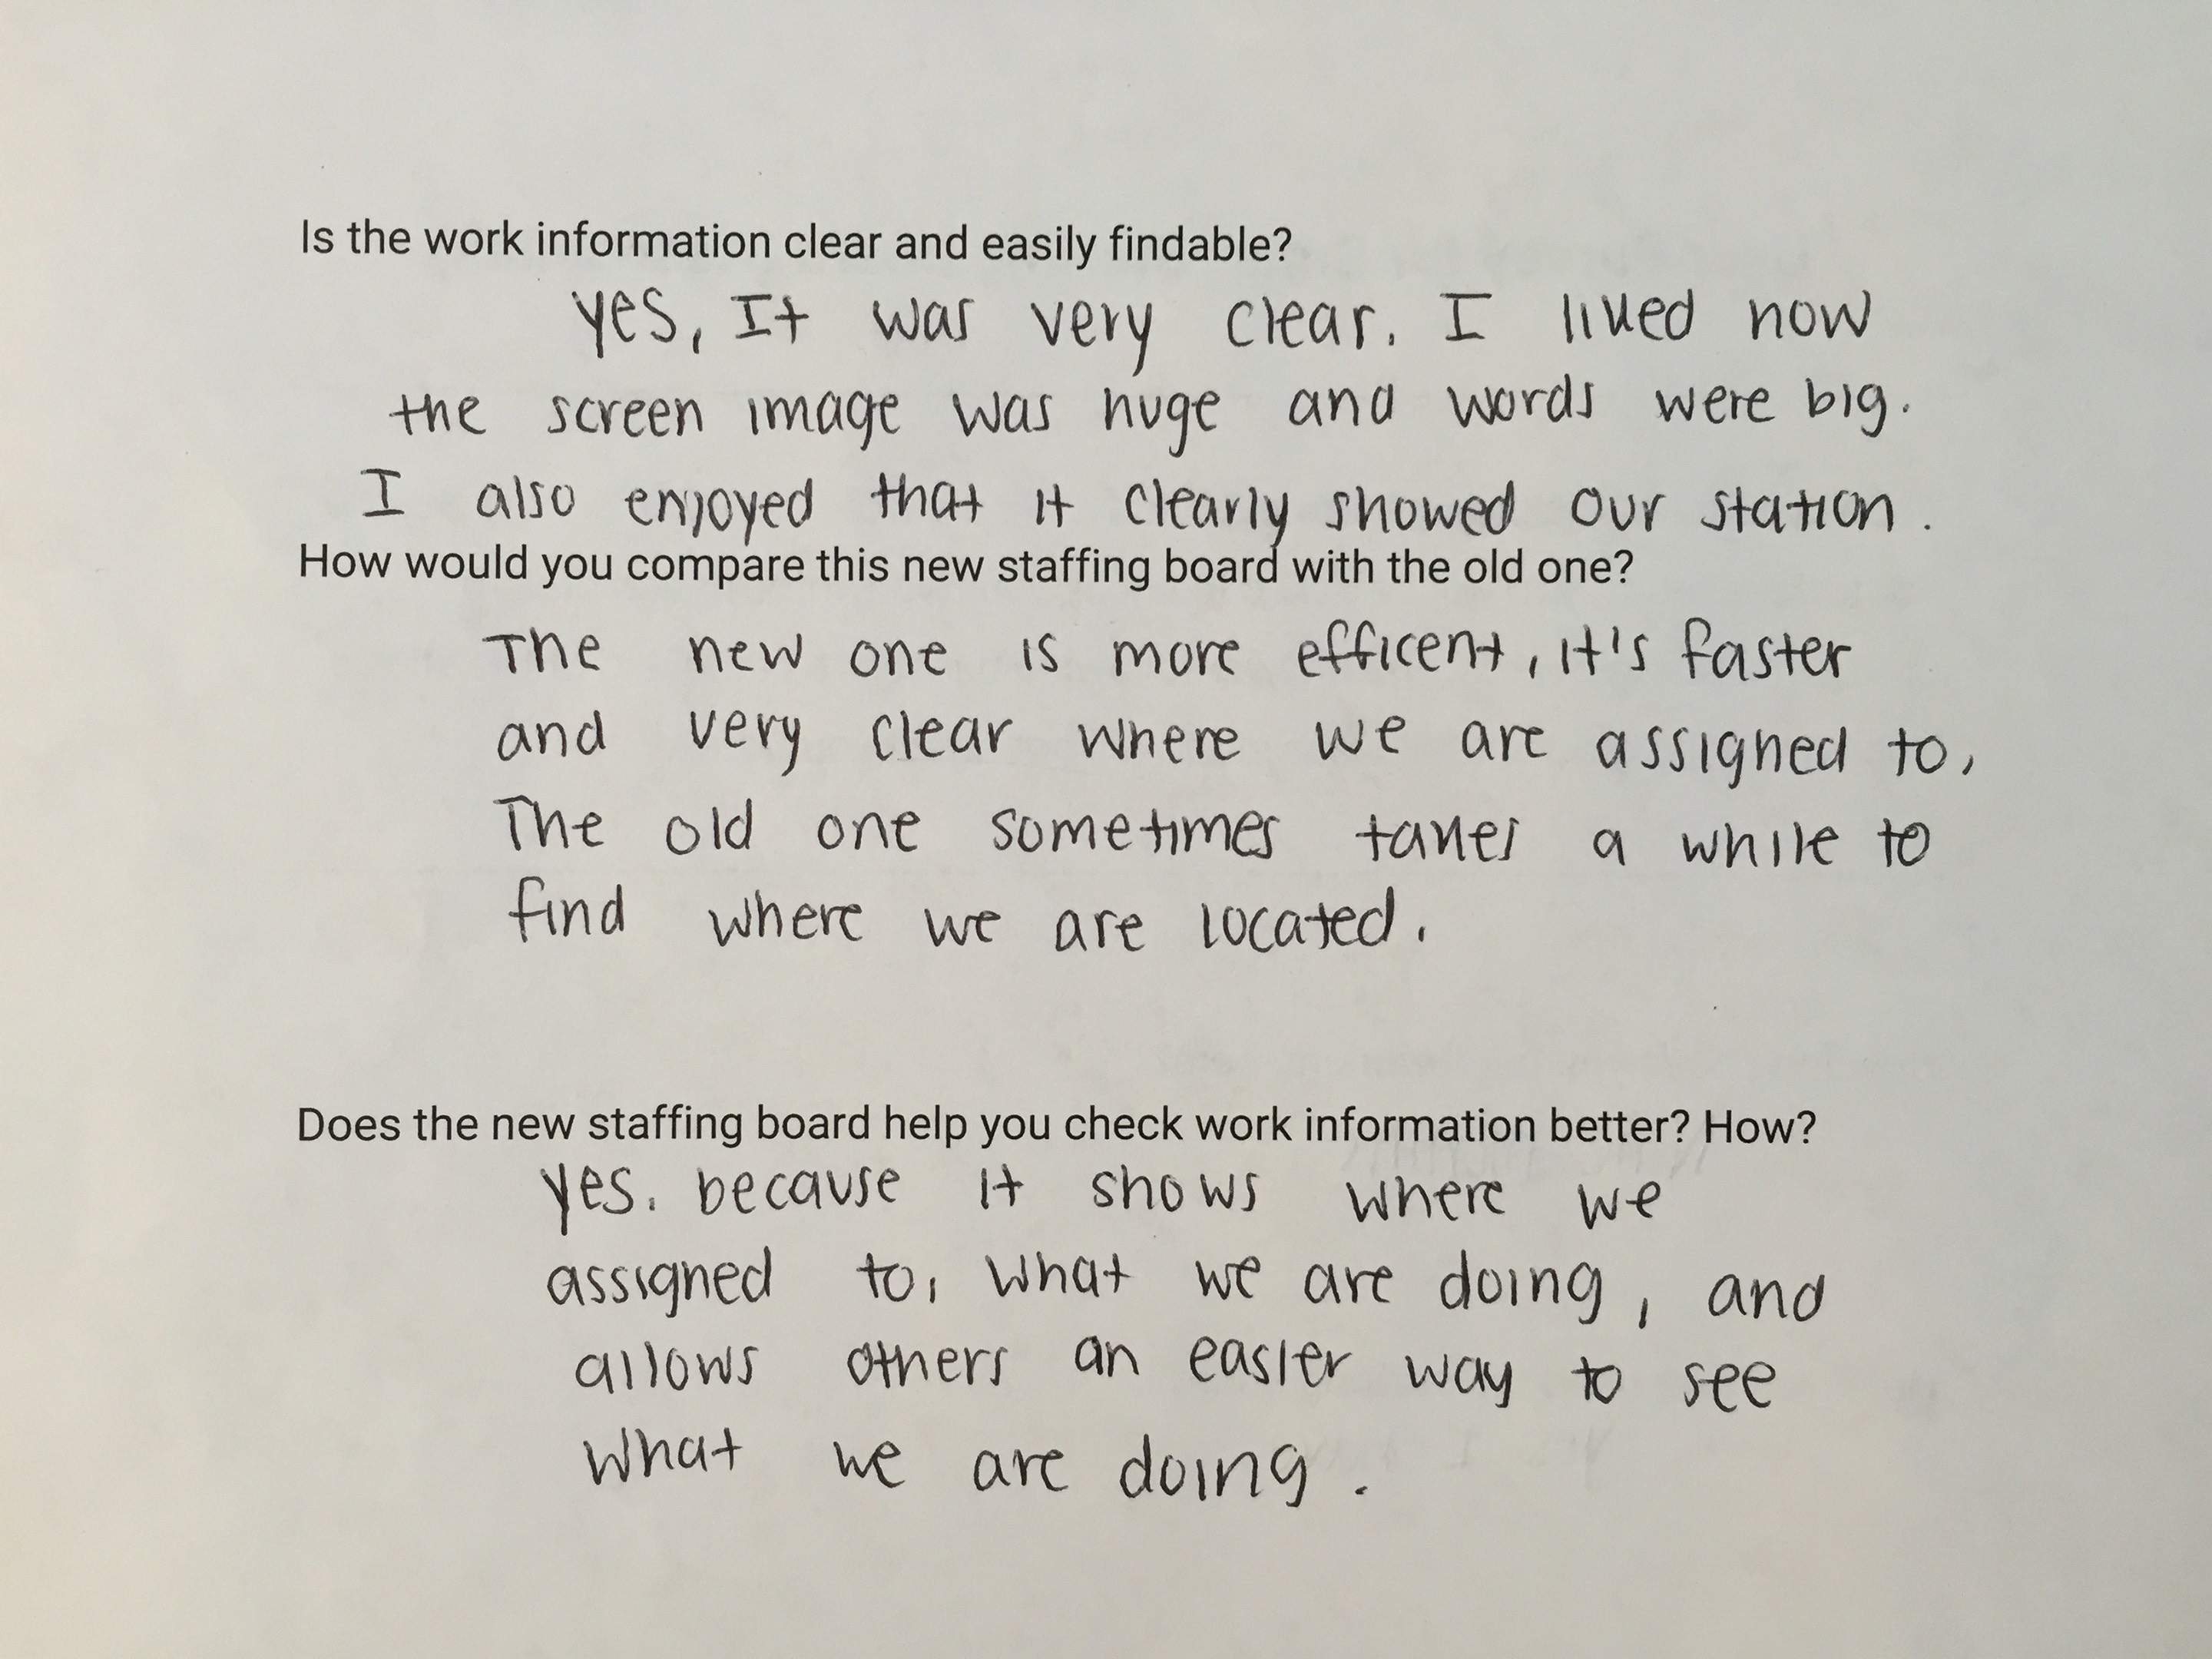 Is the work information clear and easily findable?
yes, It was very clear. I liked how
the screen image was huge and words were big.
I also enjoyed that it clearly showed our station.
How would you compare this new staffing board with the old one?
The new one is more efficent, it's faster
and very clear where we are assigned to,
The old one sometimes takes a while to
find where we are located.
Does the new staffing board help you check work information better? How?
yes. because it shows where we
assigned to, what we are doing, and
allows others an easier way to see
what we are doing.